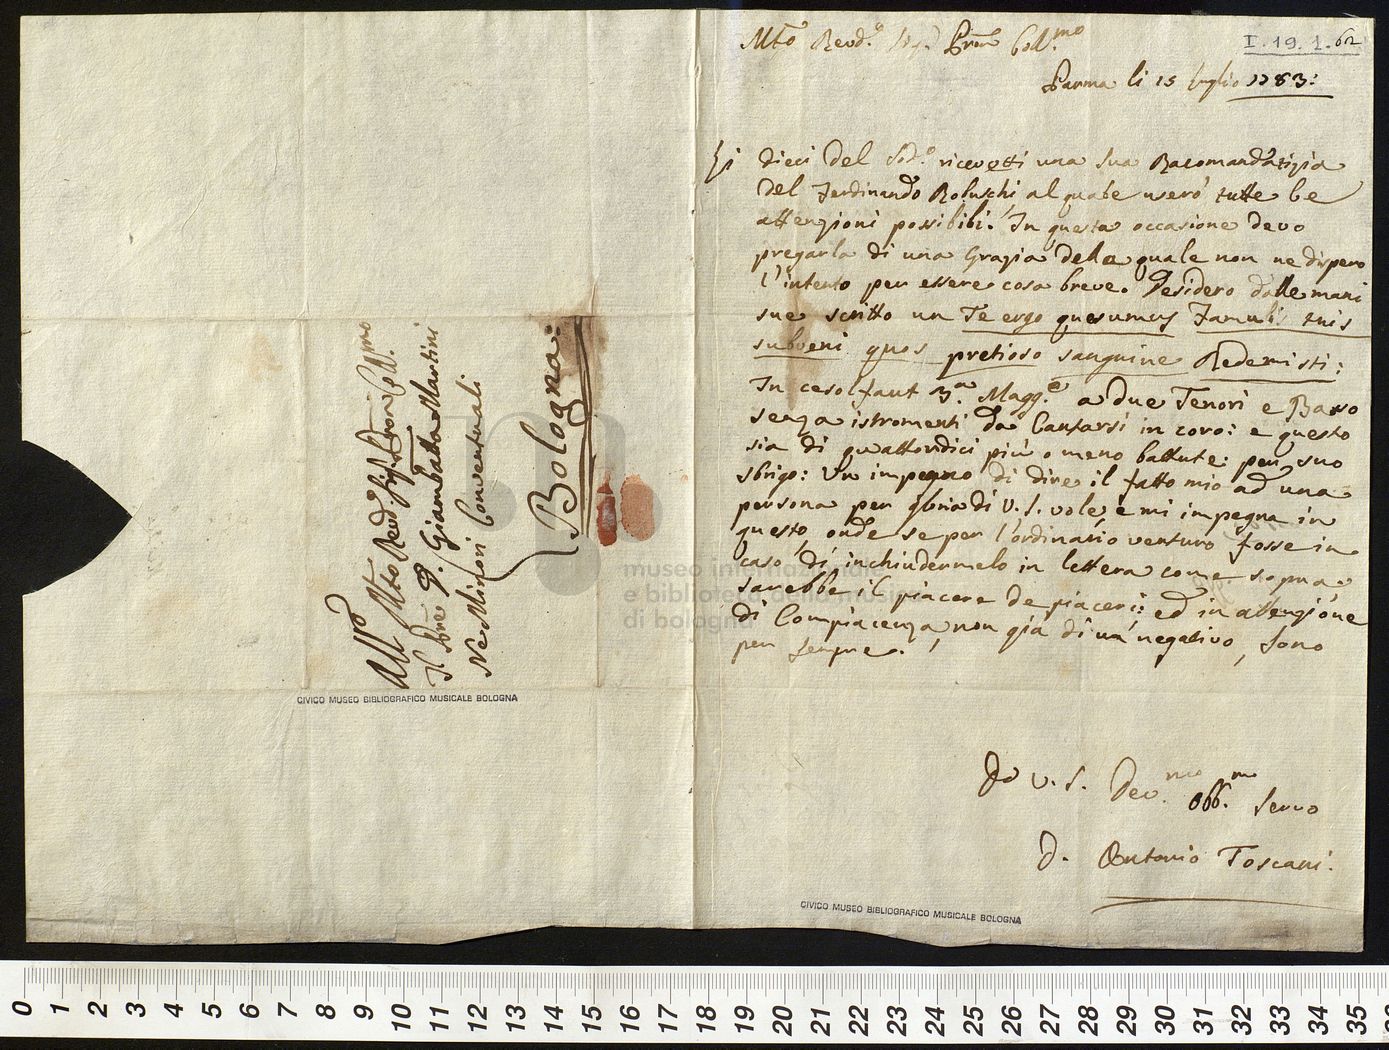 Mto Revd.o Sig.r Prone Coll.mo
I. 19. 1. 62
Parma li 15 luglio 1783:
Li dieci del Sud.o ricevetti una sua Racomandatizia
del Ferdinando Roluschi, al quale userò tutte le
attenzioni possibili. In questa occasione devo
pregarla di una Grazia della quale non ne dispero
l'intento per essere cosa breve. Desidero dalle mani
sue scritto un Te ergo quesumus Famulis tuis
subveni quos pretioso sanguine Redemisti:
In cesolfaut 3.a Magg.e a due Tenori e Basso
senza istromenti da Cantarsi in coro: e questo
sia di quattordici più o meno battute: per suo
sbrigo: Un impegno di dire il fatto mio ad una
persona per gloria di V. S. vole, e mi impegna in
questo, onde se per l'ordinario venturo fosse in
caso di inchiudermelo in lettera come sopra
sarebbe il piacere de piaceri: ed in attenzione
di Compiacenza, non già di una negativa, sono
per sempre.
Di V. S. Dev.mo Obb.mo Servo
D. Antonio Toscani.
CIVICO MUSEO BIBLIOGRAFICO MUSICALE BOLOGNA
All Mto Revd Sig. Prone Coll.mo
Il Pre P. Giambatta Martini
Ne Minori Conventuali
Bologna:
CIVICO MUSEO BIBLIOGRAFICO MUSICALE BOLOGNA
museo internazionale
e biblioteca della musica
di bologna
0 1 2 3 4 5 6 7 8 9 10 11 12 13 14 15 16 17 18 19 20 21 22 23 24 25 26 27 28 29 30 31 32 33 34 35